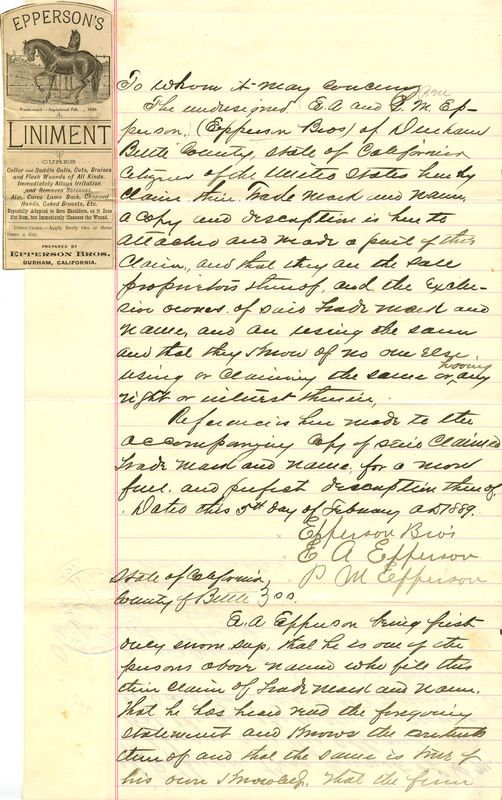 EPPERSON'S
Trade-mark—Registered Feb. , 1889.
LINIMENT
CURES
Collar and Saddle Galls, Cuts, Bruises
and Flesh Wounds of All Kinds.
Immediately Allays Irritation
and Removes Soreness.
Also, Cures Lame Back, Chapped
Hands, Caked Breasts, Etc.
Especially Adapted to Sore Shoulders, as it Does
Not Gum, but Immediately Cleanses the Wound.
DIRECTIONS.—Apply freely two or three
times a day.
PREPARED BY
EPPERSON BROS.
DURHAM, CALIFORNIA.
To whom it may concern
The undersigned E. A and P. M. Ep-
person, (Epperson Bros) of Durham
Butte County, State of California
Citizens of the United States hereby
claim their Trade Mark and Name,
a Copy and description is hereto
attached and made a part of this
Claim, and that they are the sole
proprietors thereof, and the exclu-
sive owners of said Trade Mark and
Name, and are using the same
and that they know of no one else
using or claiming the same or having any
right or interest therein,
Reference is here made to the
accompanying Copy of said Claimed
Trade Mark and Name, for a more
full and perfect description thereof.
Dated this 5th day of February AD 1889.
Epperson Bros
E A Epperson
P M Epperson
State of California
County of Butte } SS.
E. A Epperson being first
duly sworn says that he is one of the
persons above named who file this
their claim of Trade Mark and Name.
That he has heard read the foregoing
statement and knows the contents
thereof and that the same is true of
his own knowledge. That the firm